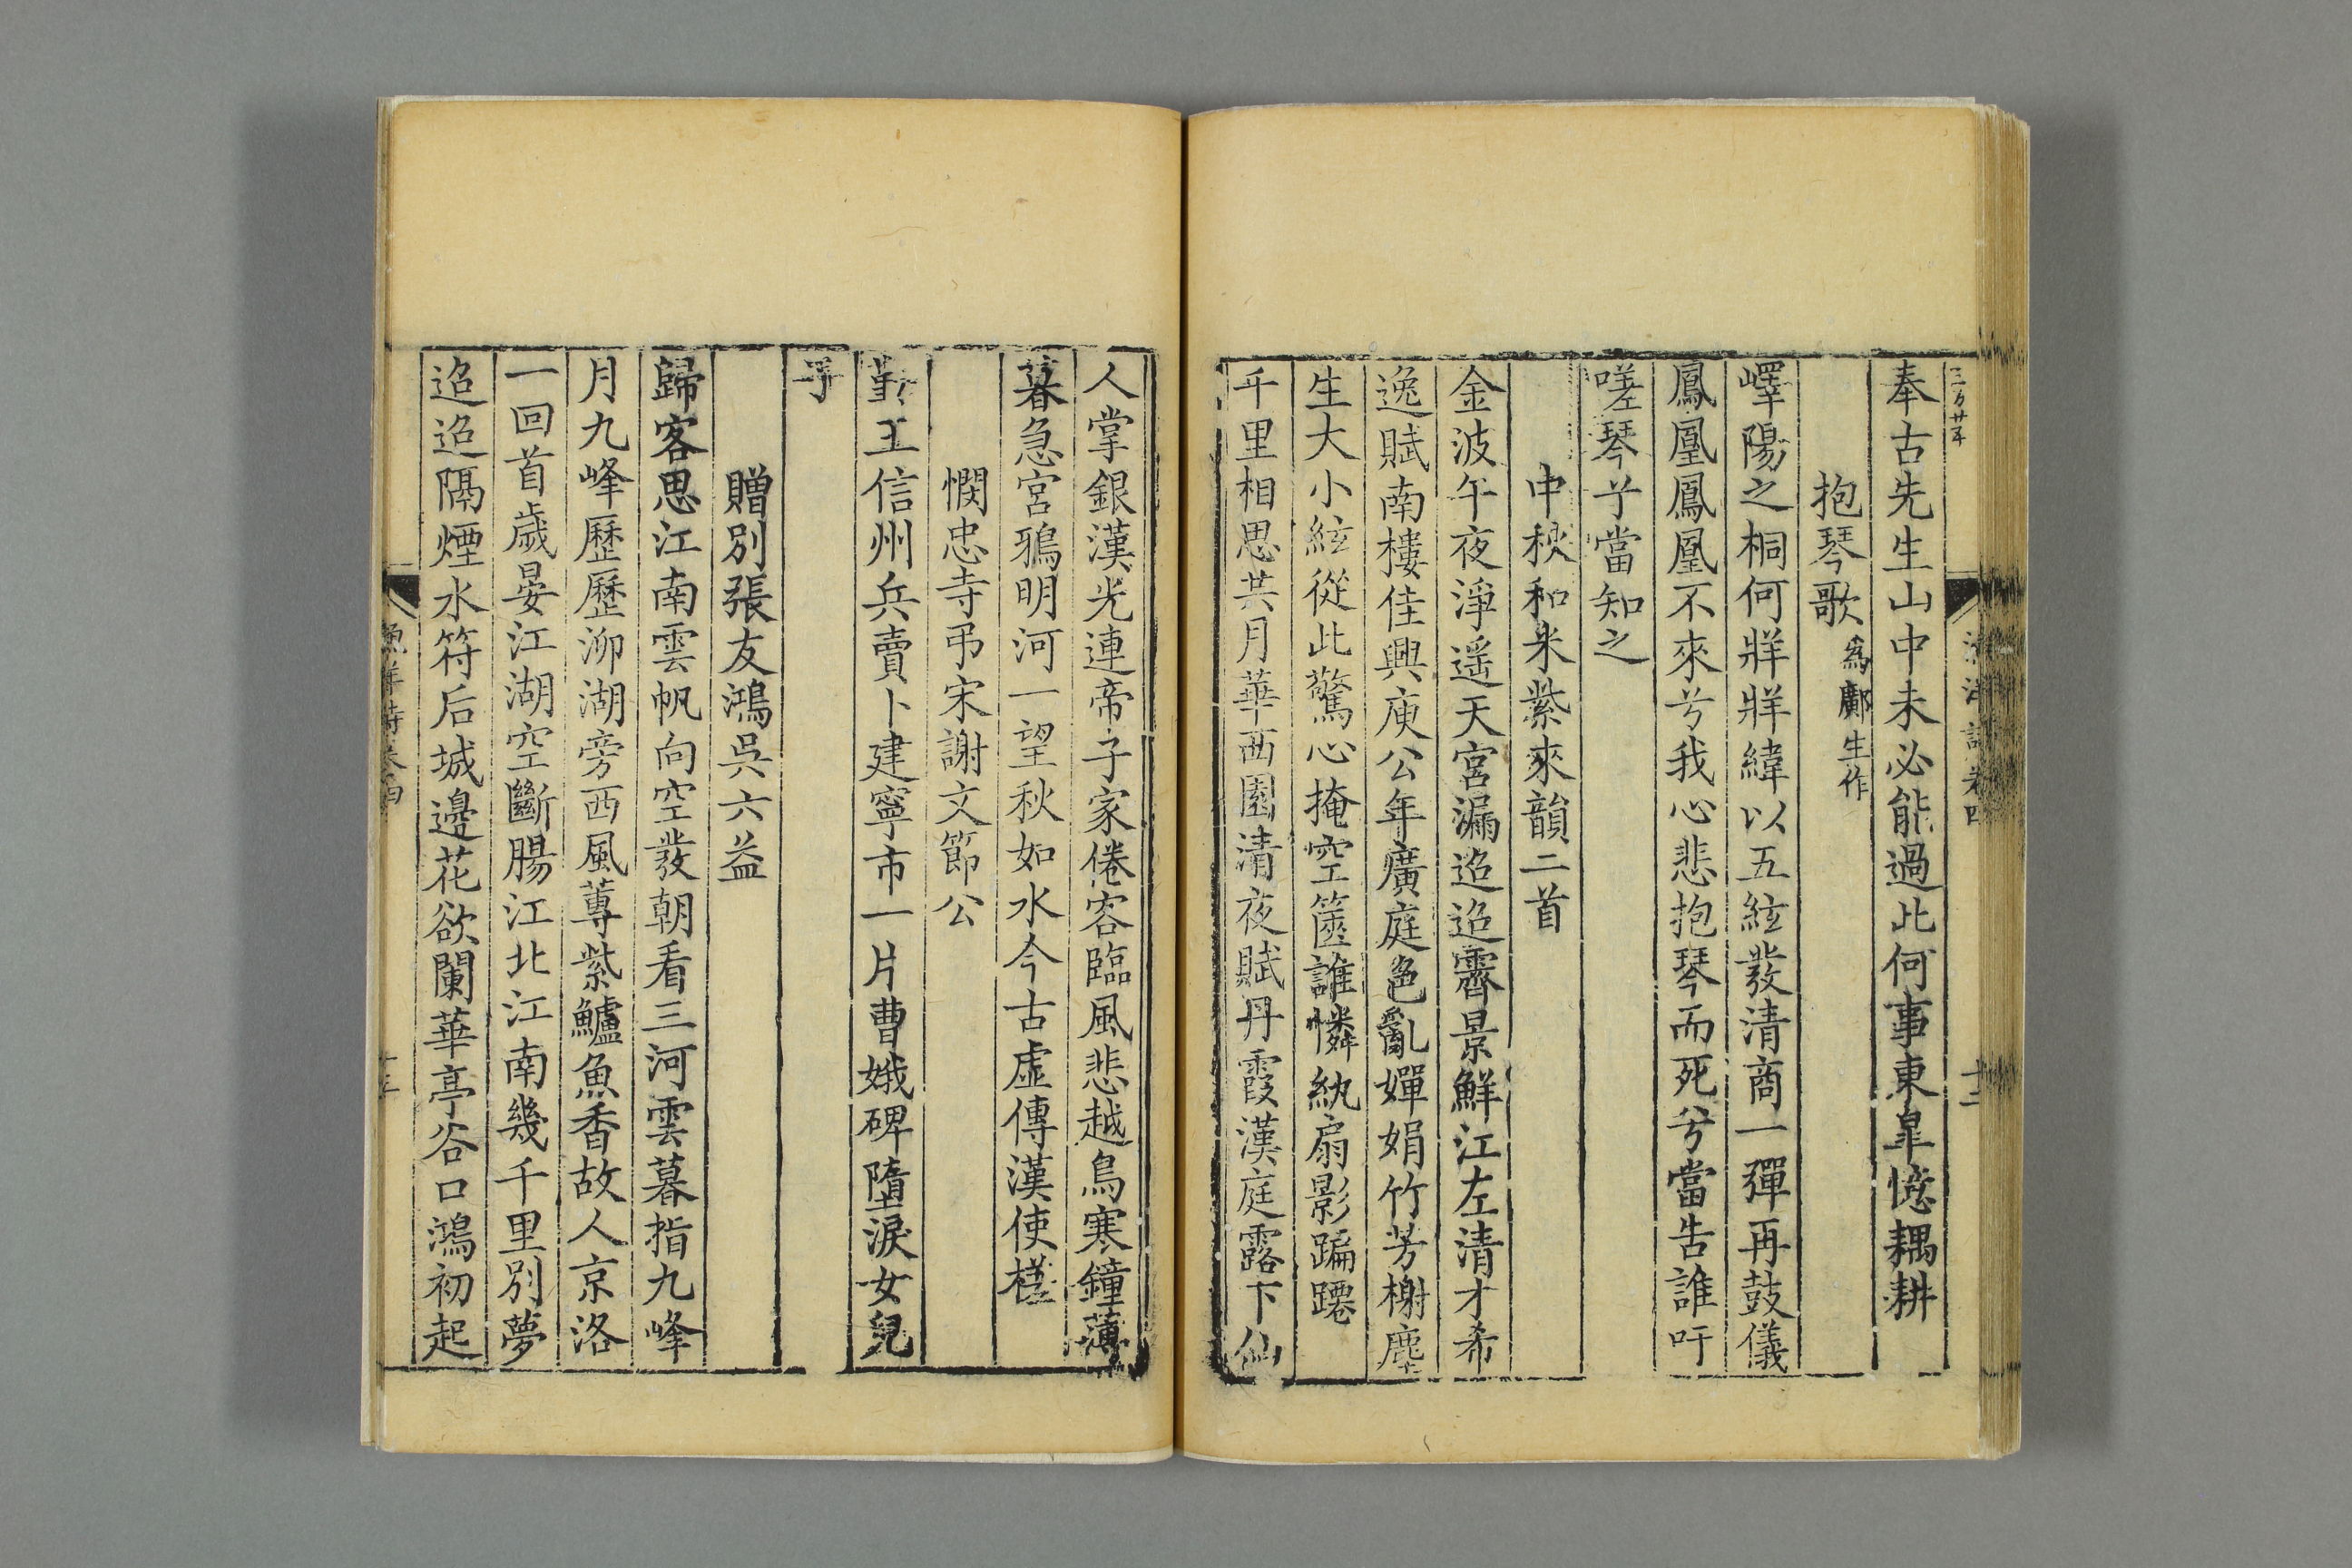 奉古先生山中未必能過此何事東皐憶耦耕
抱琴歌為鄺生作
嶧陽之桐何牂牂緯以五絃發清商一彈再鼓儀
鳳凰鳳凰不來兮我心悲抱琴而死兮當告誰吁
嗟琴兮當知之
中秋和米紫來韻二首
金波午夜淨遥天宮漏迢迢霽景鮮江左清才希
逸賦南樓佳興庾公年廣庭色亂嬋娟竹芳榭塵
生大小絃從此驚心掩空篋誰憐紈扇影蹁躚
千里相思共月華西園清夜賦丹霞漢庭露下仙
人掌銀漢光連帝子家倦客臨風悲越鳥寒鐘薄
暮急宮鴉明河一望秋如水今古虛傳漢使槎
憫忠寺弔宋謝文節公
勤王信州兵賣卜建寧市一片曹娥碑墮淚女兒
子
贈別張友鴻吳六益
歸客思江南雲帆向空發朝看三河雲暮指九峰
月九峰歷歷泖湖旁西風蓴紫鱸魚香故人京洛
一回首歲晏江湖空斷腸江北江南幾千里別夢
迢迢隔煙水符后城邊花欲闌華亭谷口鴻初起